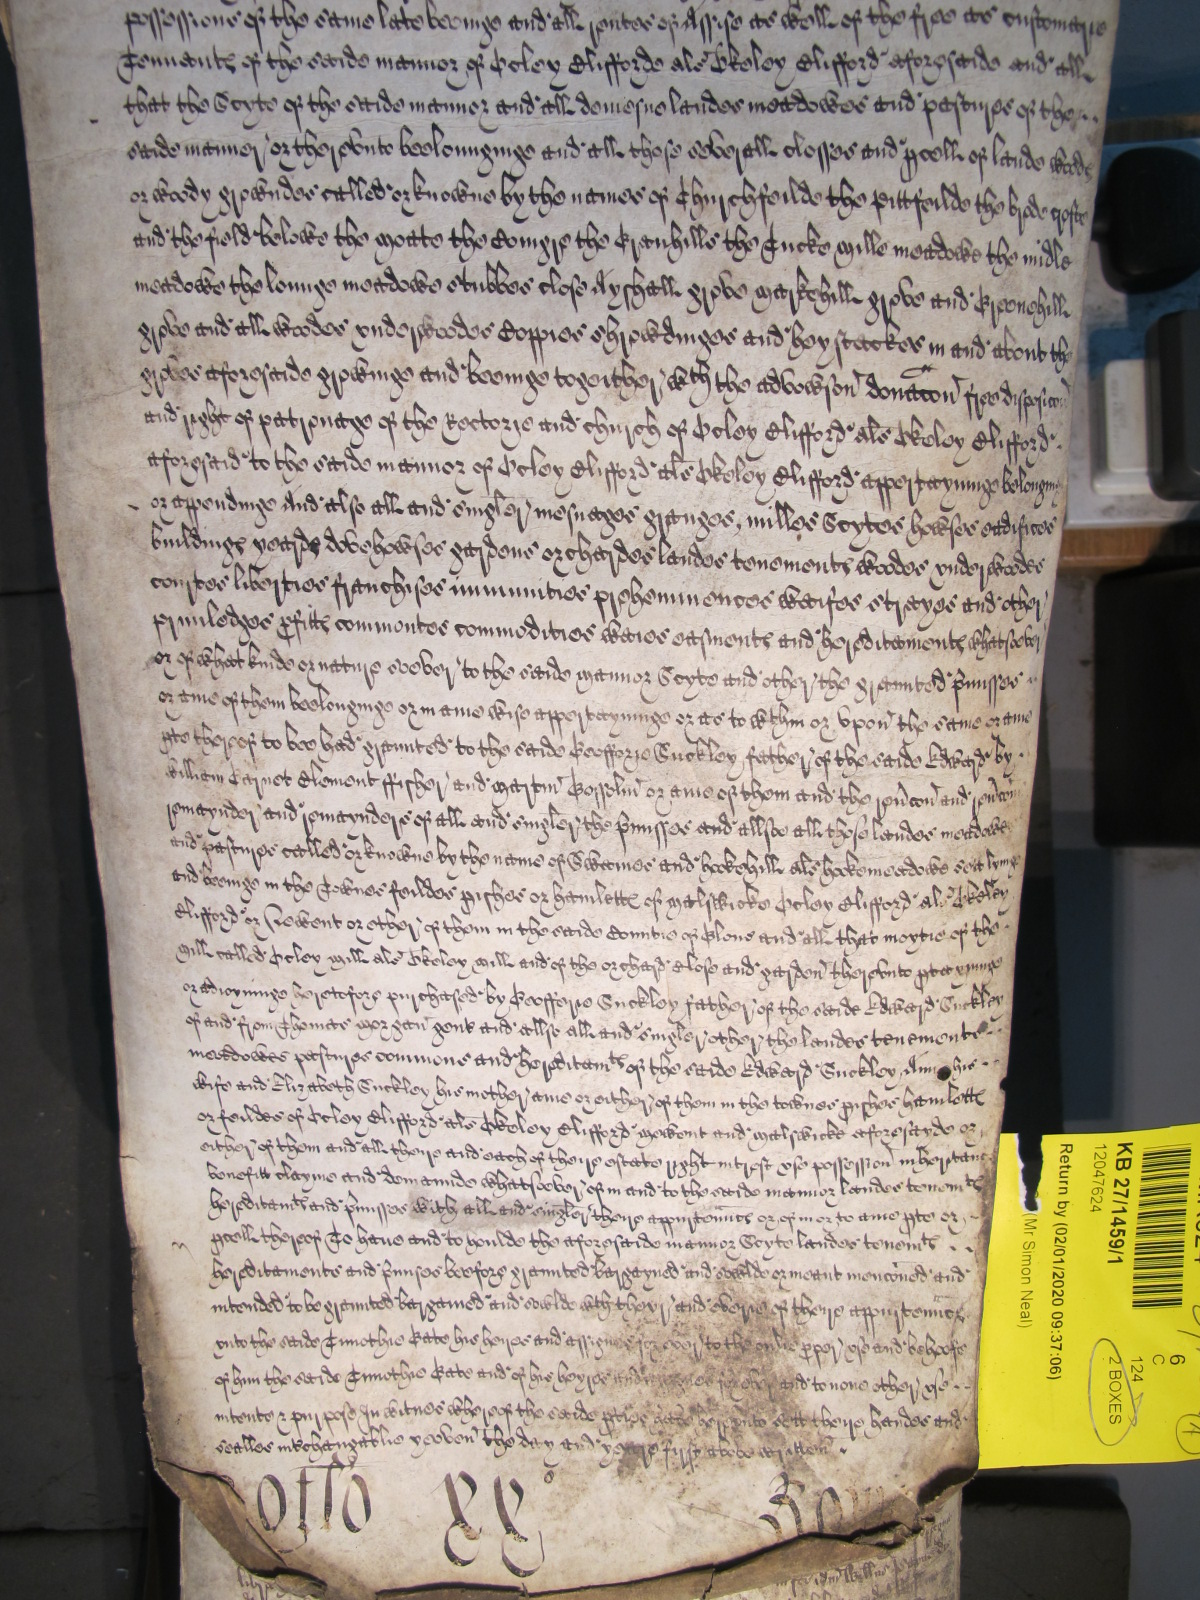 possessions of the same late beeinge and all rentes of Assise as well of the free as customarie
Tennants of the saide mannor of Ocley Clifforde als Okeley Clifford aforesaide and all
that the Scyte of the saide mannor and all demesne landes meadowes and pastures of the
saide mannor or therevnto beelounginge and all those severall closses and pcell of lande wood
or woody growndes called or knowne by the names of Churchfeilde the Pittfeilde the brode crofte
and the field belowe the moate the Conigre the Cranhills the Tucke mille meadowe the midle
meadowe the lounge meadowe stubbes close Ayshall grove Markehill grove and Greenehill
grove and all woodes vnderwoodes Coppies shrowdinges and hey stackes in and about the
groves aforesaide growinge and beeinge togeither wth the advowson donacon free disposicon
and right of patronage of the Rectorie and church of Ocley Clifford als Okeley Clifford
aforesaid to the saide mannor of Ocley Clifford als Okeley Clifford appertayninge belonginge
or appendinge And alse all and singler mesuages granges, milles Scytes howses edifices
buildings yeards dovehowses gardens orchardes landes tenements woodes vnderwoodes
courtes liberties franchises immunities preheminences waifes strayes and other
priviledges pfitts commontes commodities waies easments and hereditaments whatsoever
or of what kinde or nature soever to the saide mannor Scyte and other the graunted pmisses
or anie of them beelonginge or in anie wise appertayninge or as to wthin or vpon the same or anie
pte thereof to bee had graunted to the saide Geofferie Suckley father of the saide Edward by
william Garnet Clement ffisher and Martin Gosselin or anie of them and the revcon and revcons
remaynder and remaynders of all and singler the pmisses and allsoe all those landes meadowe
and pastures called or knowne by the name of Swaines and hookehill als hookemeadowe sea lyinge
and beeinge in the Townes feildes pishes or hamletts of Malswicke Ocley Clifford als Okeley
Clifford or Newent or either of them in the saide Countie of Glouc and all that moytie of the
Mill called Ocley Mill als Okeley Mill and of the orchard Close and garden therevnto ptayninge
or adioyninge heretofore purchased by Geofferie Suckley father of the saide Edward Suckley
of and from Thomas Morgan gent and allse all and singler other the landes tenements
meadowes pastures commons and hereditamts of the saide Edward Suckley Ann his
wife and Elizabeth Suckley his mother anie or either of them in the townes pishes hamletts
or feildes of Ocley Clifford als Okeley Clifford Newent and Malswicke aforesayde or
either of them and all theire and each of theire estate right intrest vse possession inheritance
benefitt clayme and demaunde whatsoever of in and to the saide mannor landes tenemts
hereditamts and pmisses with all and singler theire appurtennces or of in or to anie pte or
pcell thereof To haue and to houlde the aforesaide mannor Scyte landes tenemts
hereditaments and pmisses beefore graunted bargayned and soulde or meant mencioned and
intended to be graunted bargained and soulde wth theyr and everie of theire appurtennces
vnto the saide Timothie Gate his heires and assignes for ever to the onlie pper vse and behoofe
of him the saide Timothie Gate and of his heyres and assignes for ever and to none other vse
intente or purpose In witnes whereof the saide pties have herevnto sett theire handes and
sealles interchangablie yeoven the day and yeare first above written
Rotlo xx°
KB 27/1459/1
12047624
Return by (02/01/2020 09:37:06)
(Mr Simon Neal)
6
C
124
2 BOXES